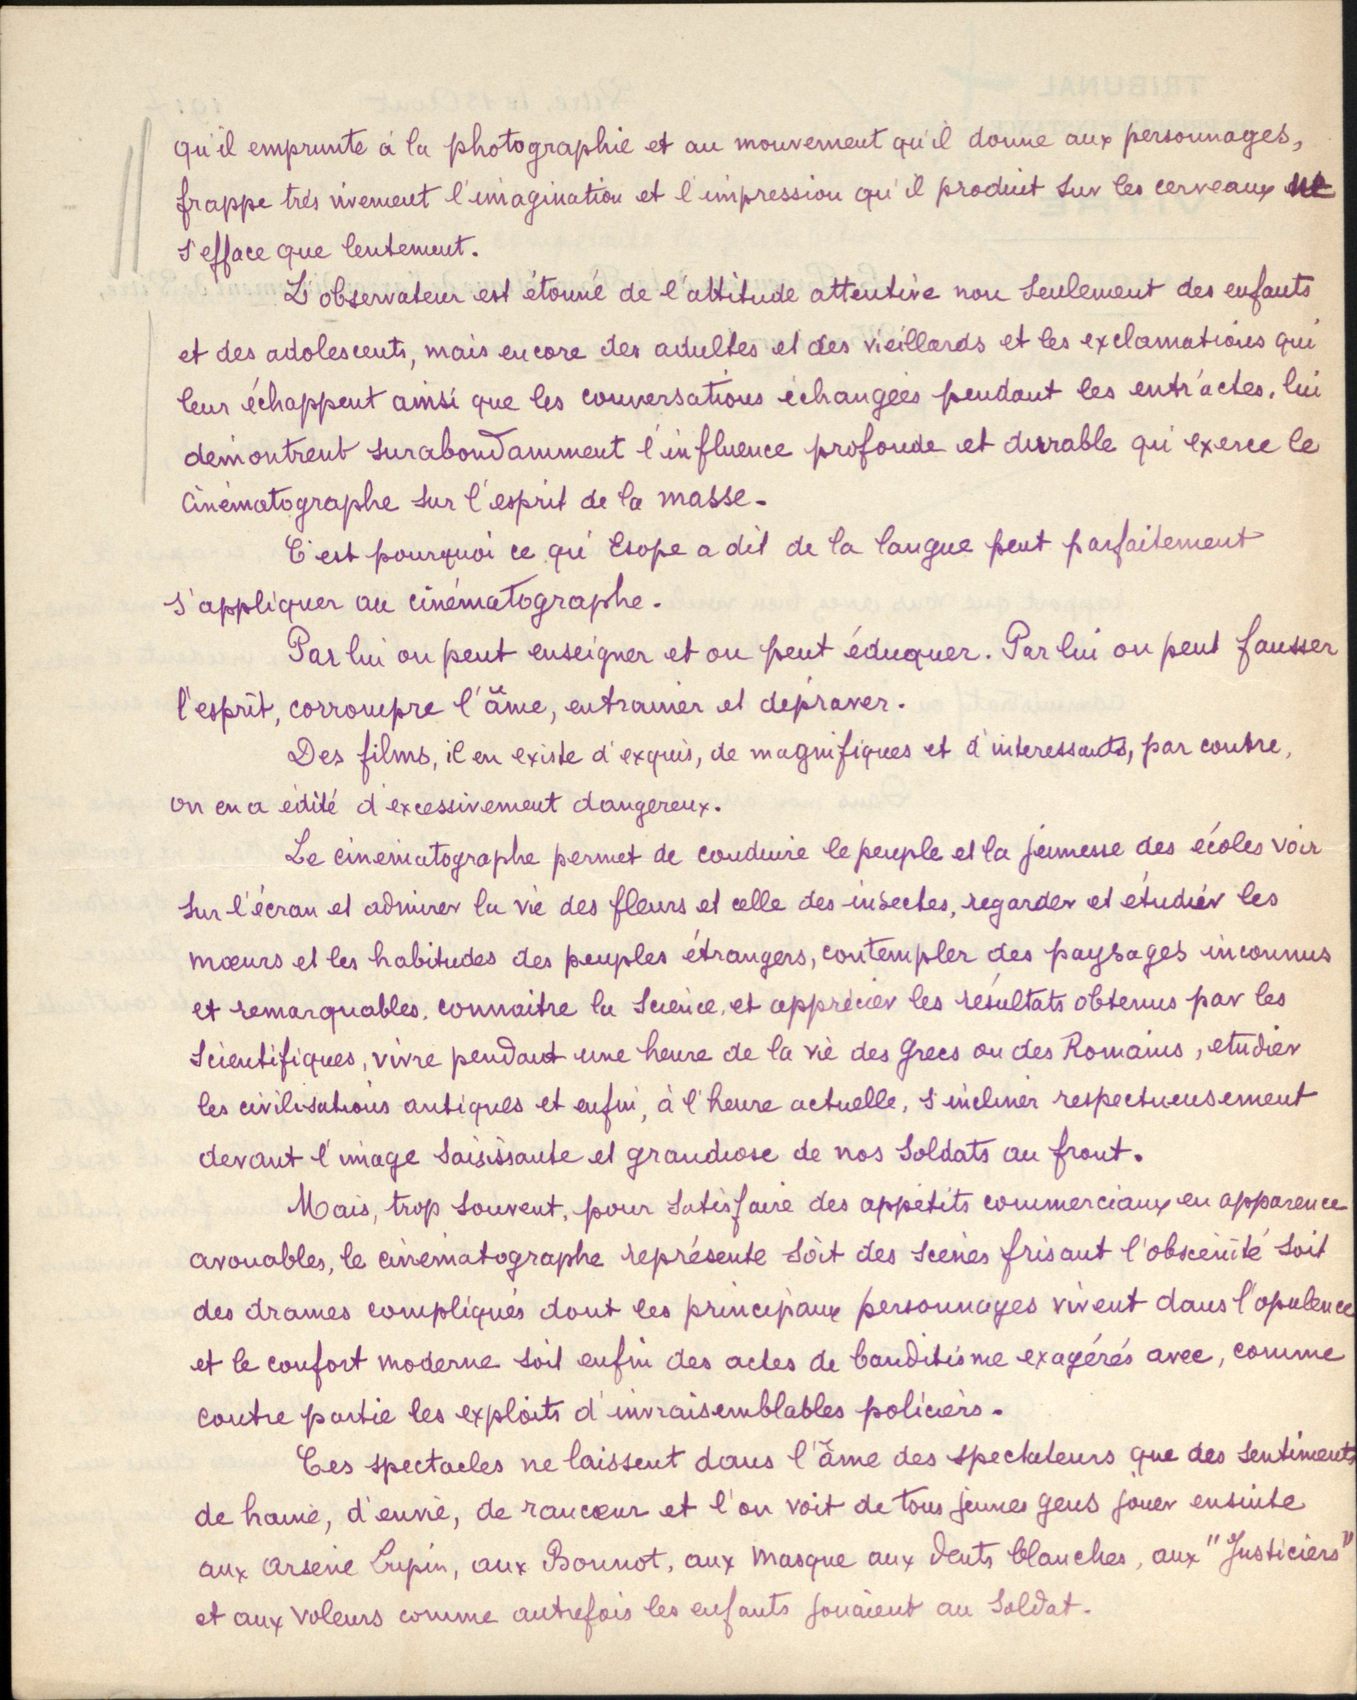 qu'il emprunte à la photographie et au mouvement qu'il donne aux personnages,
frappe très vivement l'imagination et l'impression qu'il produit sur les cerveaux ne
s'efface que lentement.
L'observateur est étonné de l'attitude attentive non seulement des enfants
et des adolescents, mais encore des adultes et des vieillards et les exclamations qui
leur échappent ainsi que les conversations échangées pendant les entr'actes, lui
démontrent surabondamment l'influence profonde et durable qu'exerce le
cinématographe sur l'esprit de la masse.
C'est pourquoi ce qu'Esope a dit de la langue peut parfaitement
s'appliquer au cinématographe.
Par lui on peut enseigner et on peut éduquer. Par lui on peut fausser
l'esprit, corrompre l'âme, entrainer et dépraver.
Des films, il en existe d'exquis, de magnifiques et d'interessants, par contre,
on en a édité d'excessivement dangereux.
Le cinématographe permet de conduire le peuple et la jeunesse des écoles voir
sur l'écran et admirer la vie des fleurs et celle des insectes, regarder et étudier les
mœurs et les habitudes des peuples étrangers, contempler des paysages inconnus
et remarquables, connaitre la science, et apprécier les résultats obtenus par les
scientifiques, vivre pendant une heure de la vie des Grecs ou des Romains, etudier
les civilisations antiques et enfin, à l'heure actuelle, s'incliner respectueusement
devant l'image saisissante et grandiose de nos soldats au front.
Mais, trop souvent, pour satisfaire des appétits commerciaux en apparence
avouables, le cinématographe représente soit des scènes frisant l'obscénité soit
des drames compliqués dont les principaux personnages vivent dans l'opulence
et le confort moderne soit enfin des actes de banditisme exagérés avec, comme
contre partie les exploits d'invraisemblables policiers.
Ces spectacles ne laissent dans l'âme des spectateurs que des sentiments
de haine, d'envie, de rancœur et l'on voit de tous jeunes gens jouer ensuite
aux Arsène Lupin, aux Bonnot, aux Masque aux dents blanches, aux "Justiciers"
et aux voleurs comme autrefois les enfants jouaient au soldat.